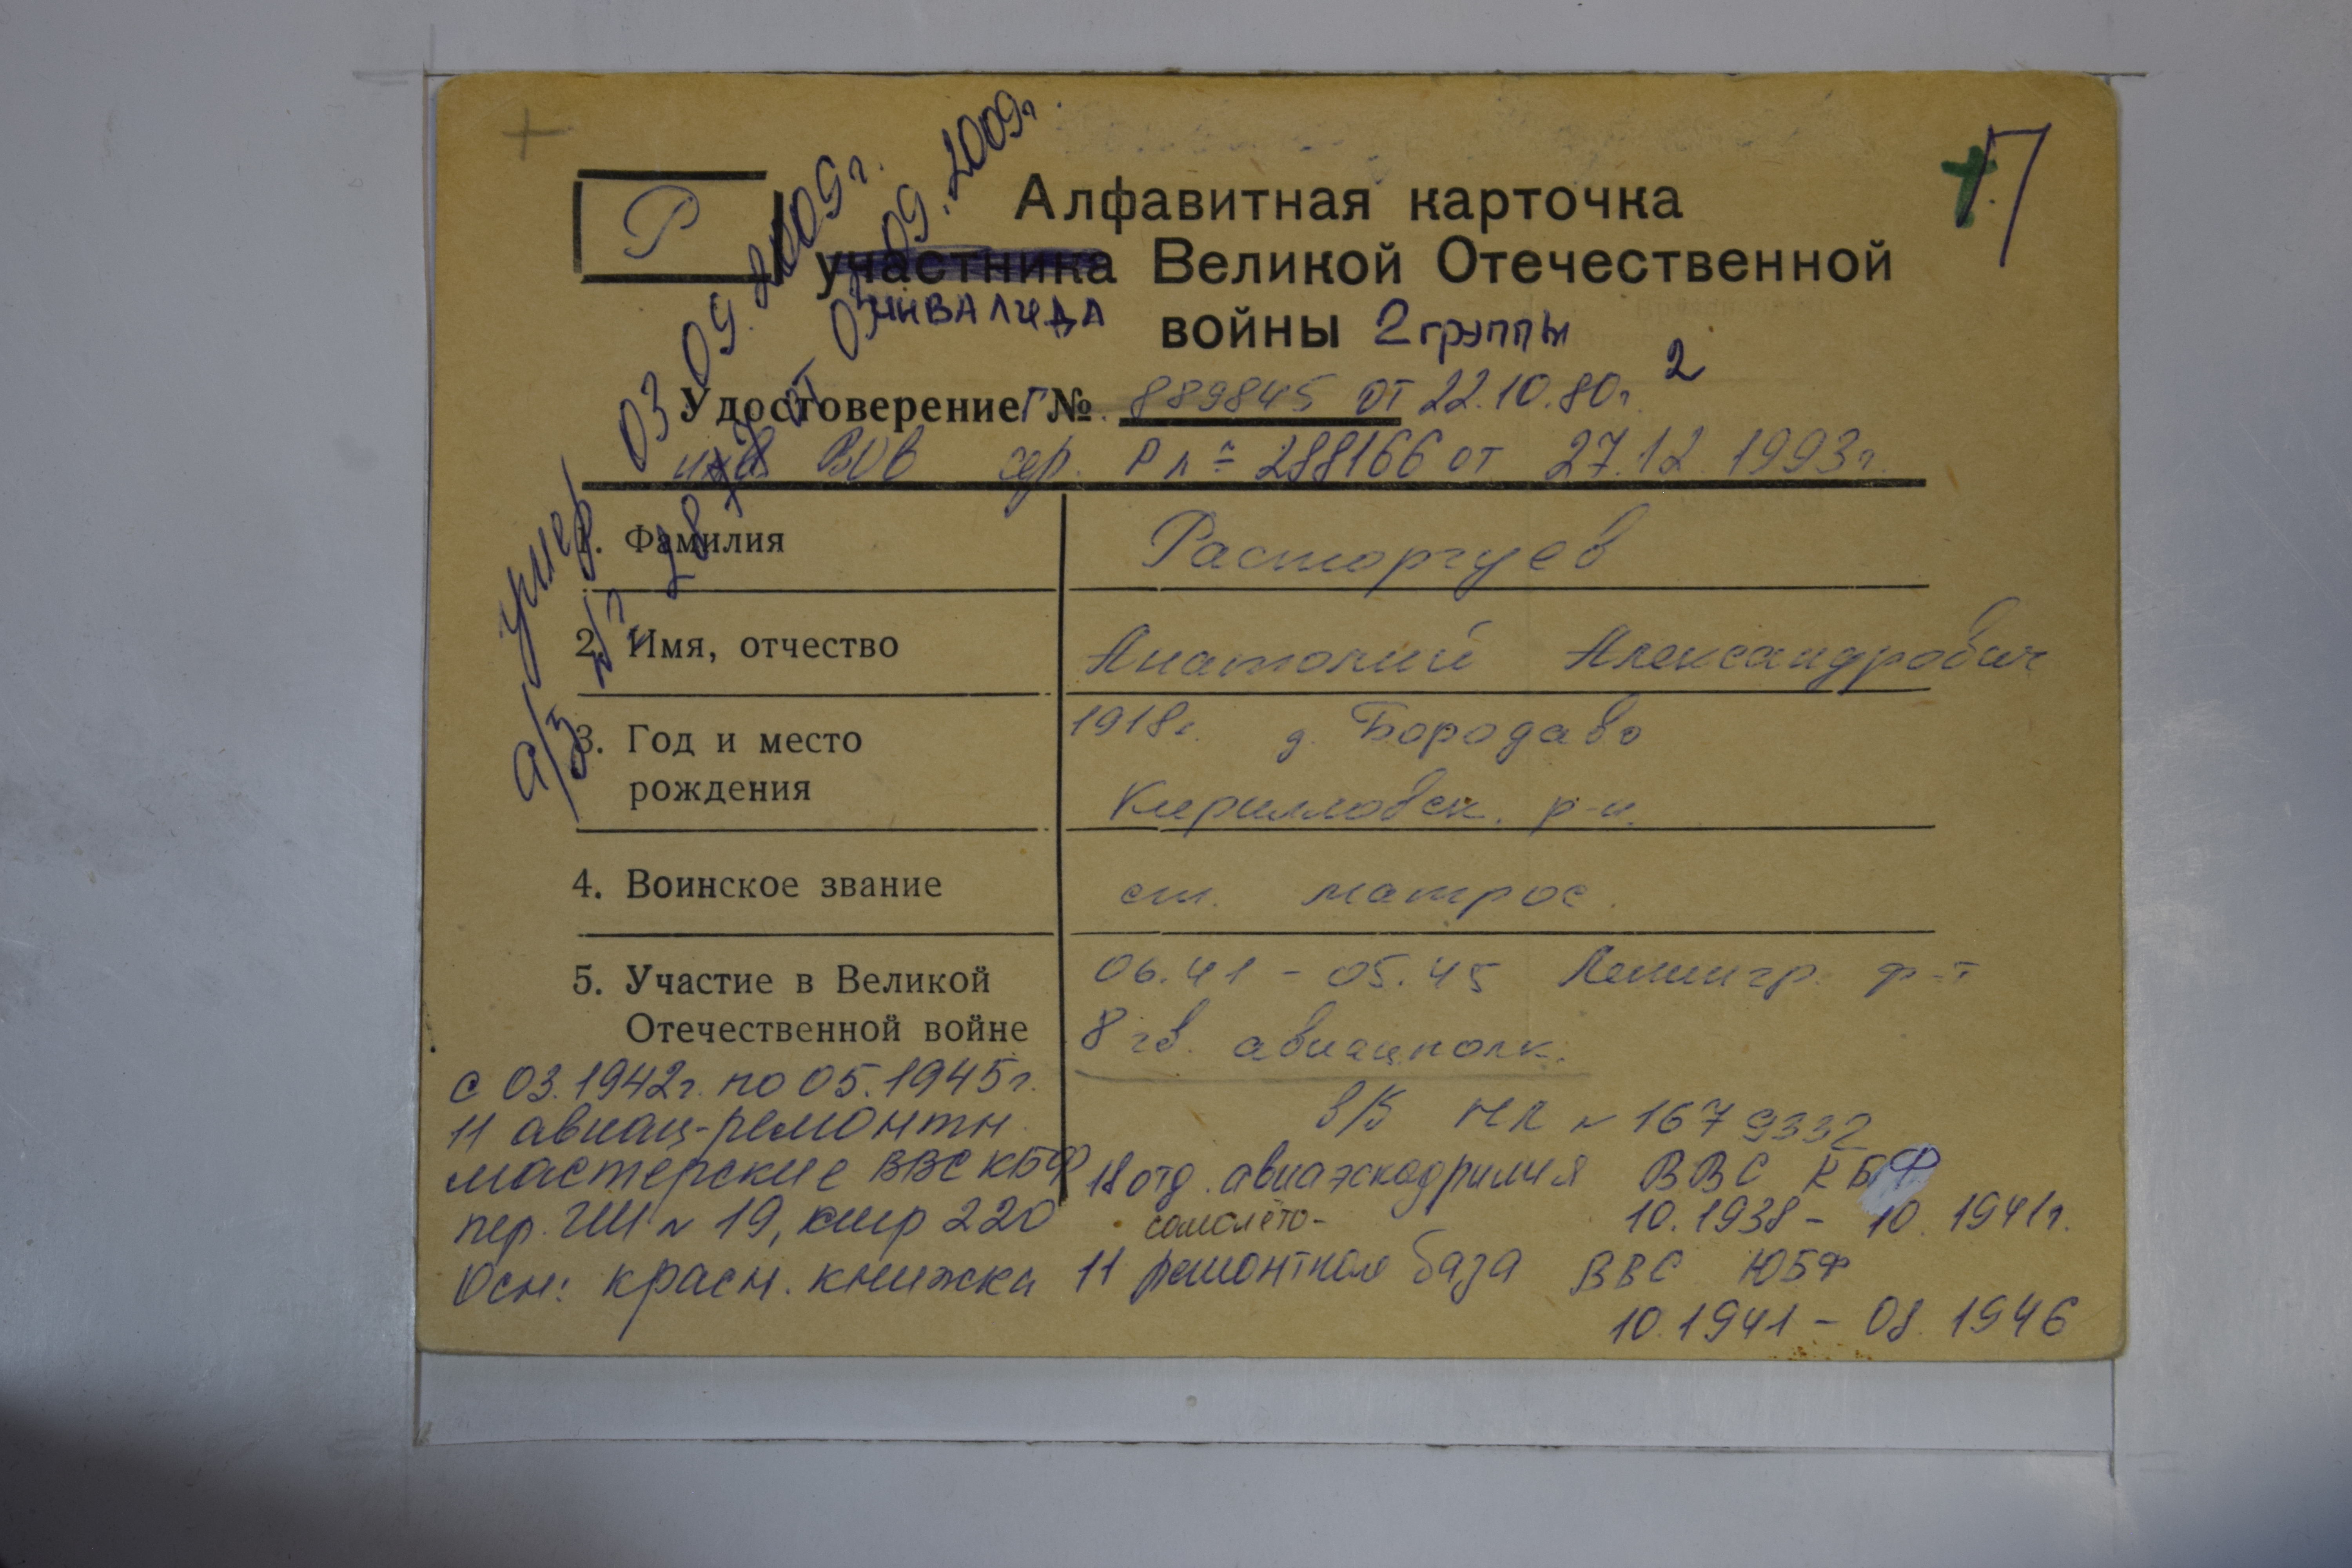 Р
П
Алфавитная карточка
участника Великой Отечественной
инвалида
войны 2 группы
2
Удостоверение Г № 889845 от 22.10.80г.
инв ВОВ сер. Р № 288166 от 27.12.1993г.
умер 03 09.2009г.
а/з № 287 от 03.09.2009г.
1. Фамилия Расторгуев
2. Имя, отчество Анатолий Александрович
3. Год и место 1918г. д. Бородаво
рождения Кирилловск. р-н.
4. Воинское звание ст. матрос.
5. Участие в Великой 06.41 - 05.45 Ленингр. ф-т
Отечественной войне 8 гв. авиацполк.
с 03.1942г. по 05.1945г.
11 авиац-ремонтн.
мастерские ВВС КБФ
пер. ГШ № 19, стр 220
Осн: красн. книжка
в/б НЛ № 1679332
18 отд. авиаэскадрилия ВВС КБФ
10.1938 - 10.1941г.
самолёто-
11 ремонтная база ВВС ЮБФ
10.1941 - 08.1946